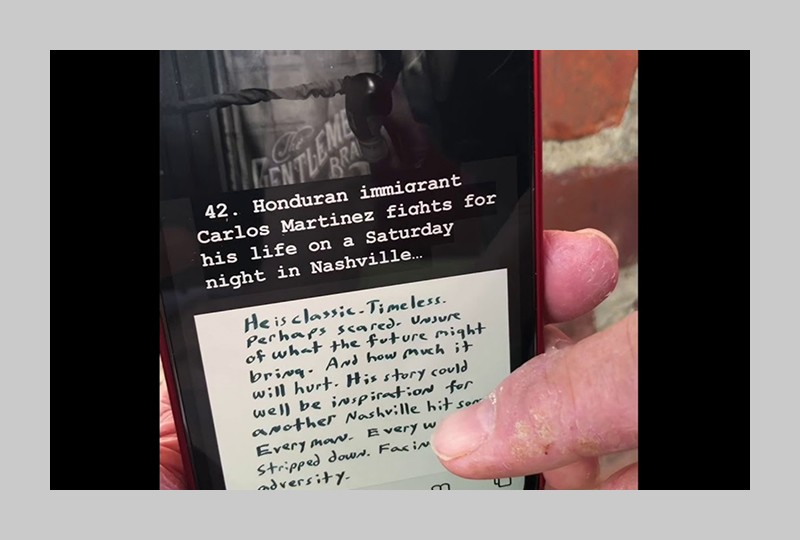 The
GENTLEME
BRA
42. Honduran immigrant
Carlos Martinez fights for
his life on a Saturday
night in Nashville…
He is classic. Timeless.
Perhaps scared. Unsure
of what the future might
bring. And how much it
will hurt. His story could
well be inspiration for
another Nashville hit son
Everyman. Every w
stripped down. Facin
adversity.